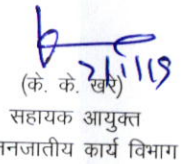 2/1/19
(के. के. खरे)
सहायक आयुक्त
जनजातीय कार्य विभाग